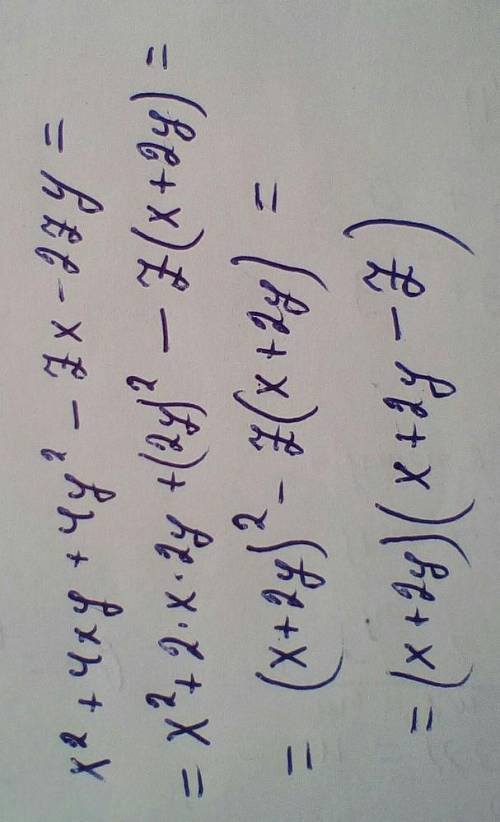 x² + 4xy + 4y² - zx - 2zy =
= x² + 2·x·2y + (2y)² - z(x + 2y) =
= (x + 2y)² - z(x + 2y) =
= (x + 2y)(x + 2y - z)